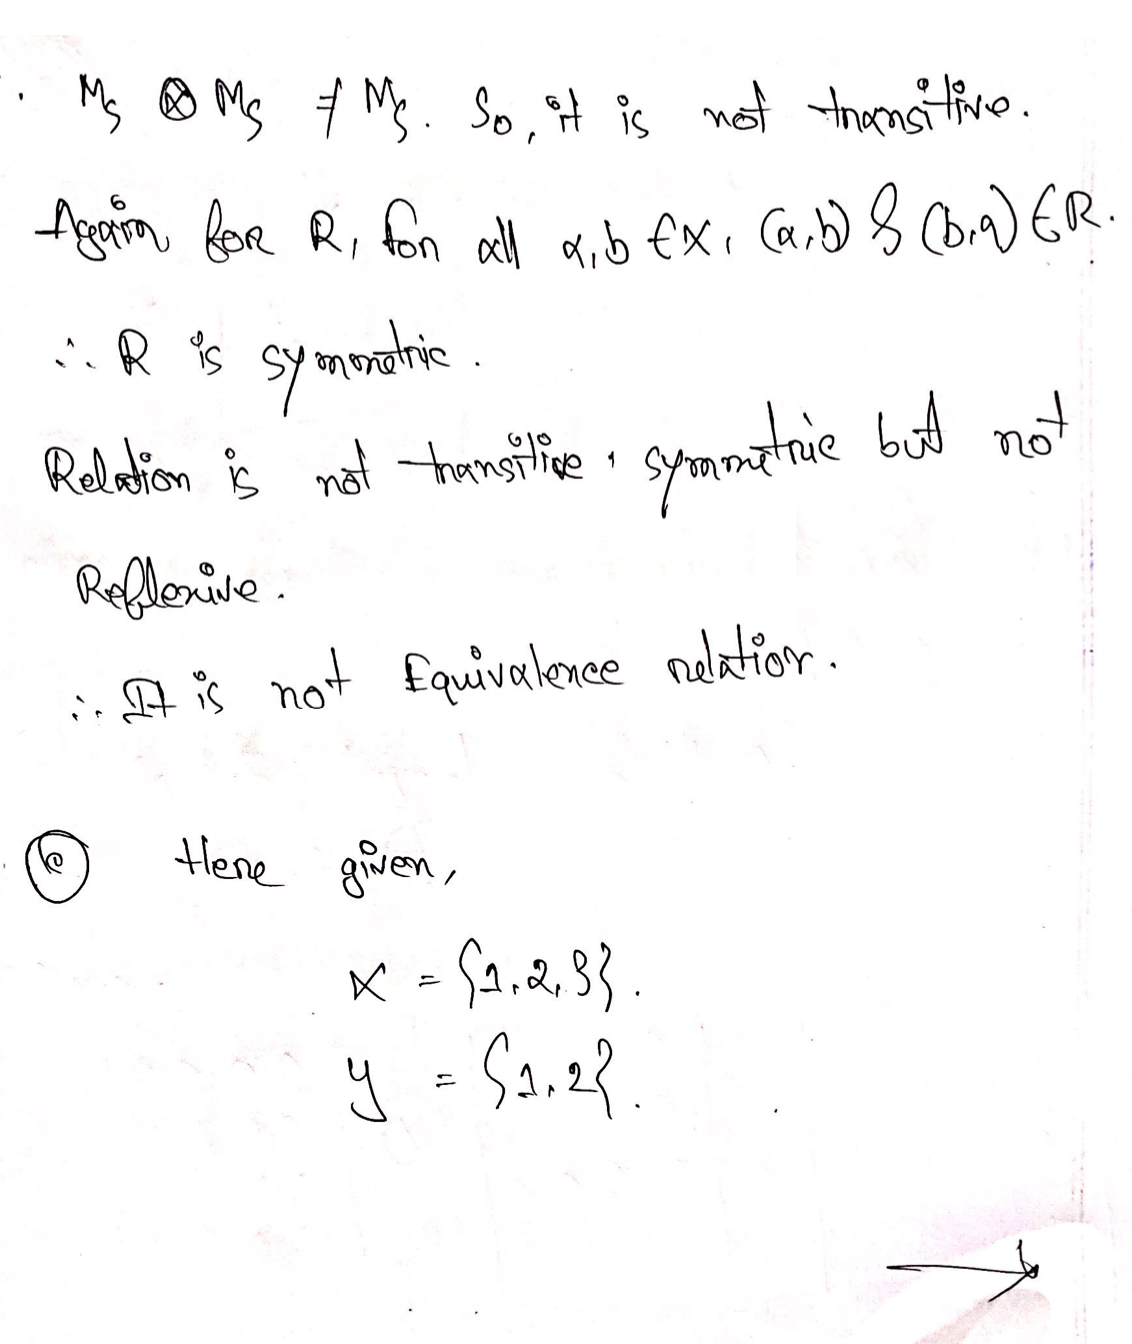 M_S ⊗ M_S ≠ M_S. So, it is not transitive.
Again for R, for all a,b ∈ X, (a,b) & (b,a) ∈ R.
∴ R is symmetric.
Relation is not transitive, symmetric but not
Reflexive.
∴ It is not Equivalence relation.
Here given,
X = {1,2,3}.
y = {1,2}.